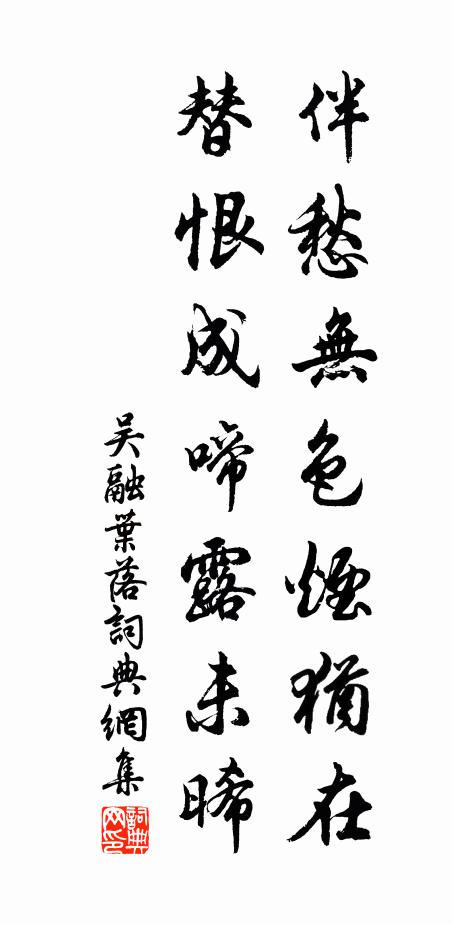 伴愁無色煙猶在
替恨成啼露未晞
吳融葉落詞典網集
詞典網印